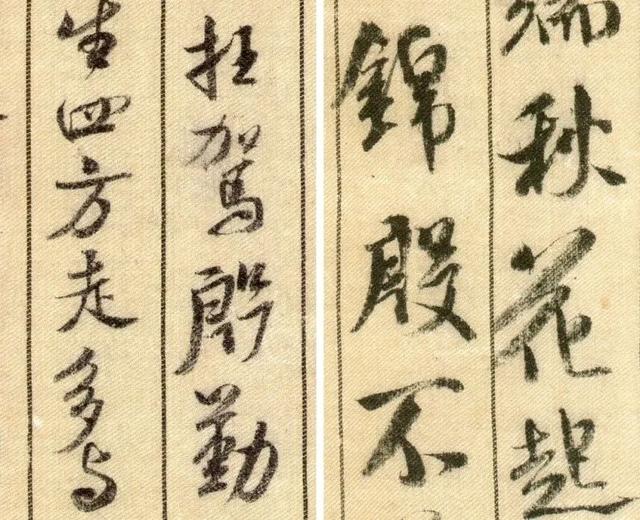 枉駕殷勤
生四方走多与
端秋花起
錦殷不